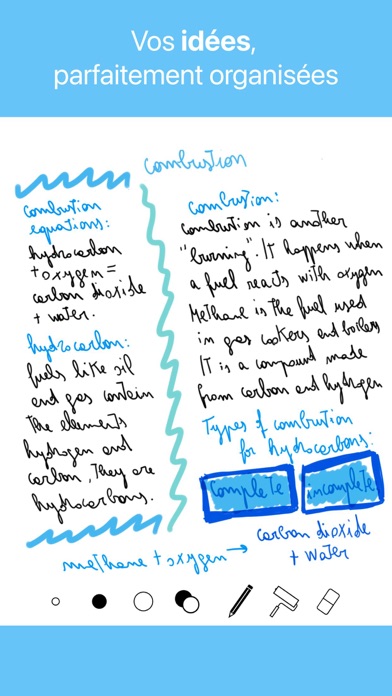 Vos idées,
parfaitement organisées
combustion
combustion
equations:
hydrocarbon
+ oxygem =
carbon dioxide
+ water.
hydrocarbon:
fuels like oil
and gas contain
the elements
hydrogen and
carbon, they are
hydrocarbons.
combustion:
combustion is another
"burning". It happens when
a fuel reacts with oxygen
Methane is the fuel used
in gas cookers and boilers
It is a compound made
from carbon and hydrogen
Types of combustion
for hydrocarbons:
complete
incomplete
methane + oxygen → carbon dioxide
+ water